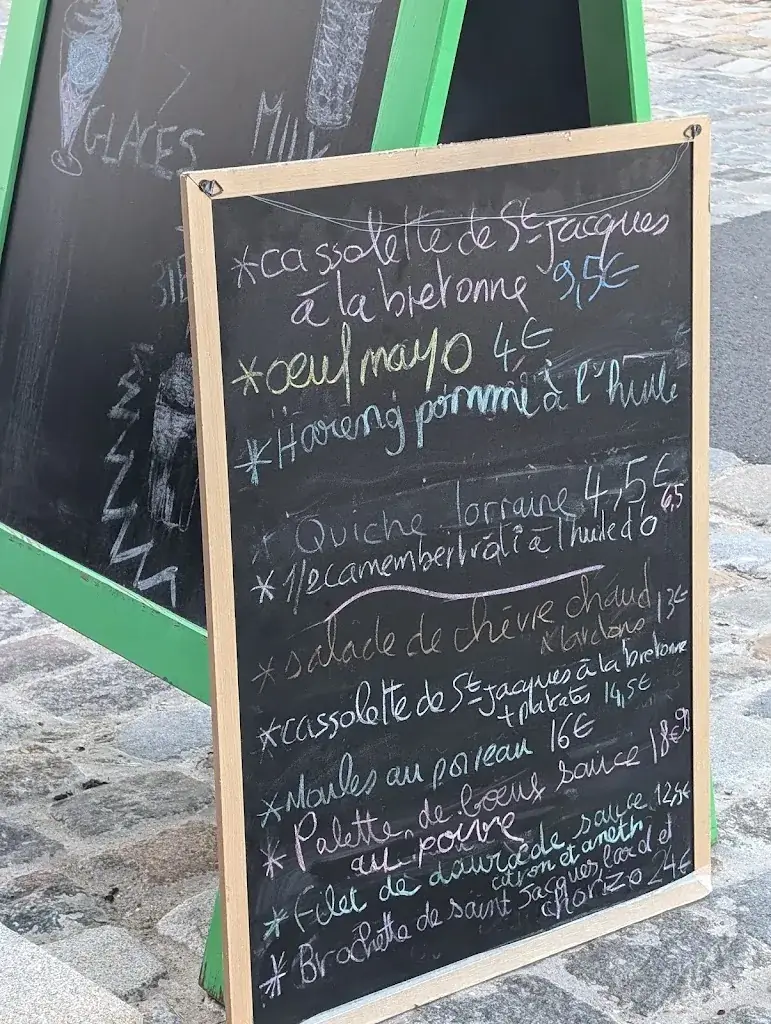 GLACES
MILK
*cassolette de St-Jacques
à la bretonne 9,5€
*oeuf mayo 4€
*Hareng pomme à l'huile
* Quiche lorraine 4,5€
* 1/2 camembert rôti à l'huile d'o 6,5
*salade de chèvre chaud 13€
x lardons
*cassolette de St-Jacques à la bretonne
+ patates 14,5€
*Moules au poireau 16€
* Palette de boeuf sauce 18€90
au poivre
* Filet de daurade sauce 12,5€
citron et aneth
* Brochette de saint Jacques, lard et
chorizo 24€